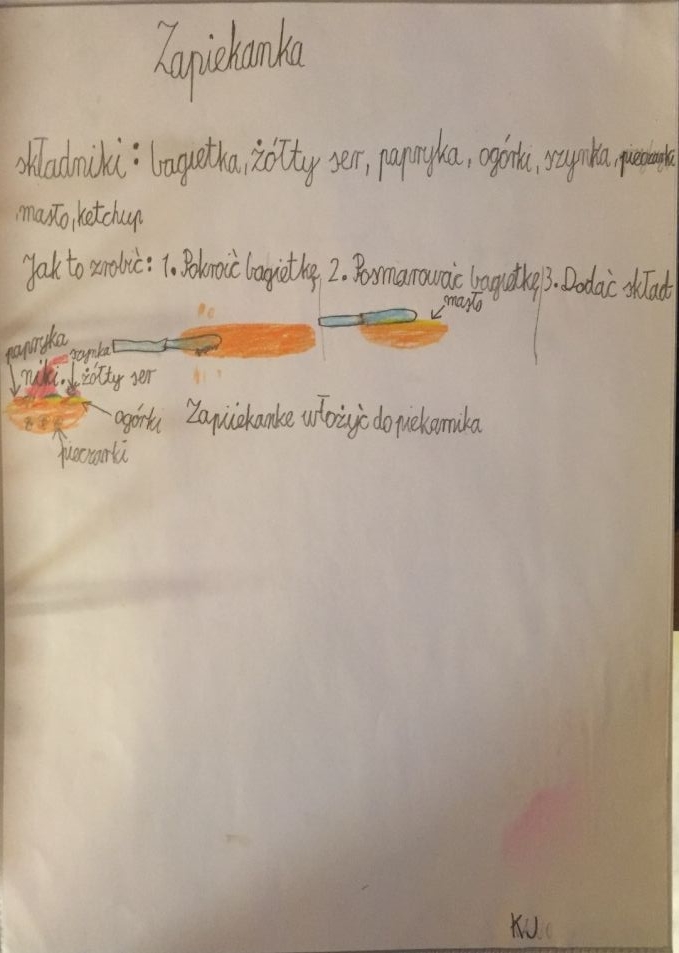 Zapiekanka
składniki: bagietka, żółty ser, papryka, ogórki, szynka, pieczarki
masło, ketchup
Jak to zrobić: 1. Pokroić bagietkę 2. Posmarować bagietkę 3. Dodać skład
masło
papryka
szynka
niki. żółty ser
ogórki Zapiiekanke włożyć do piekarnika
pieczarki
KJ